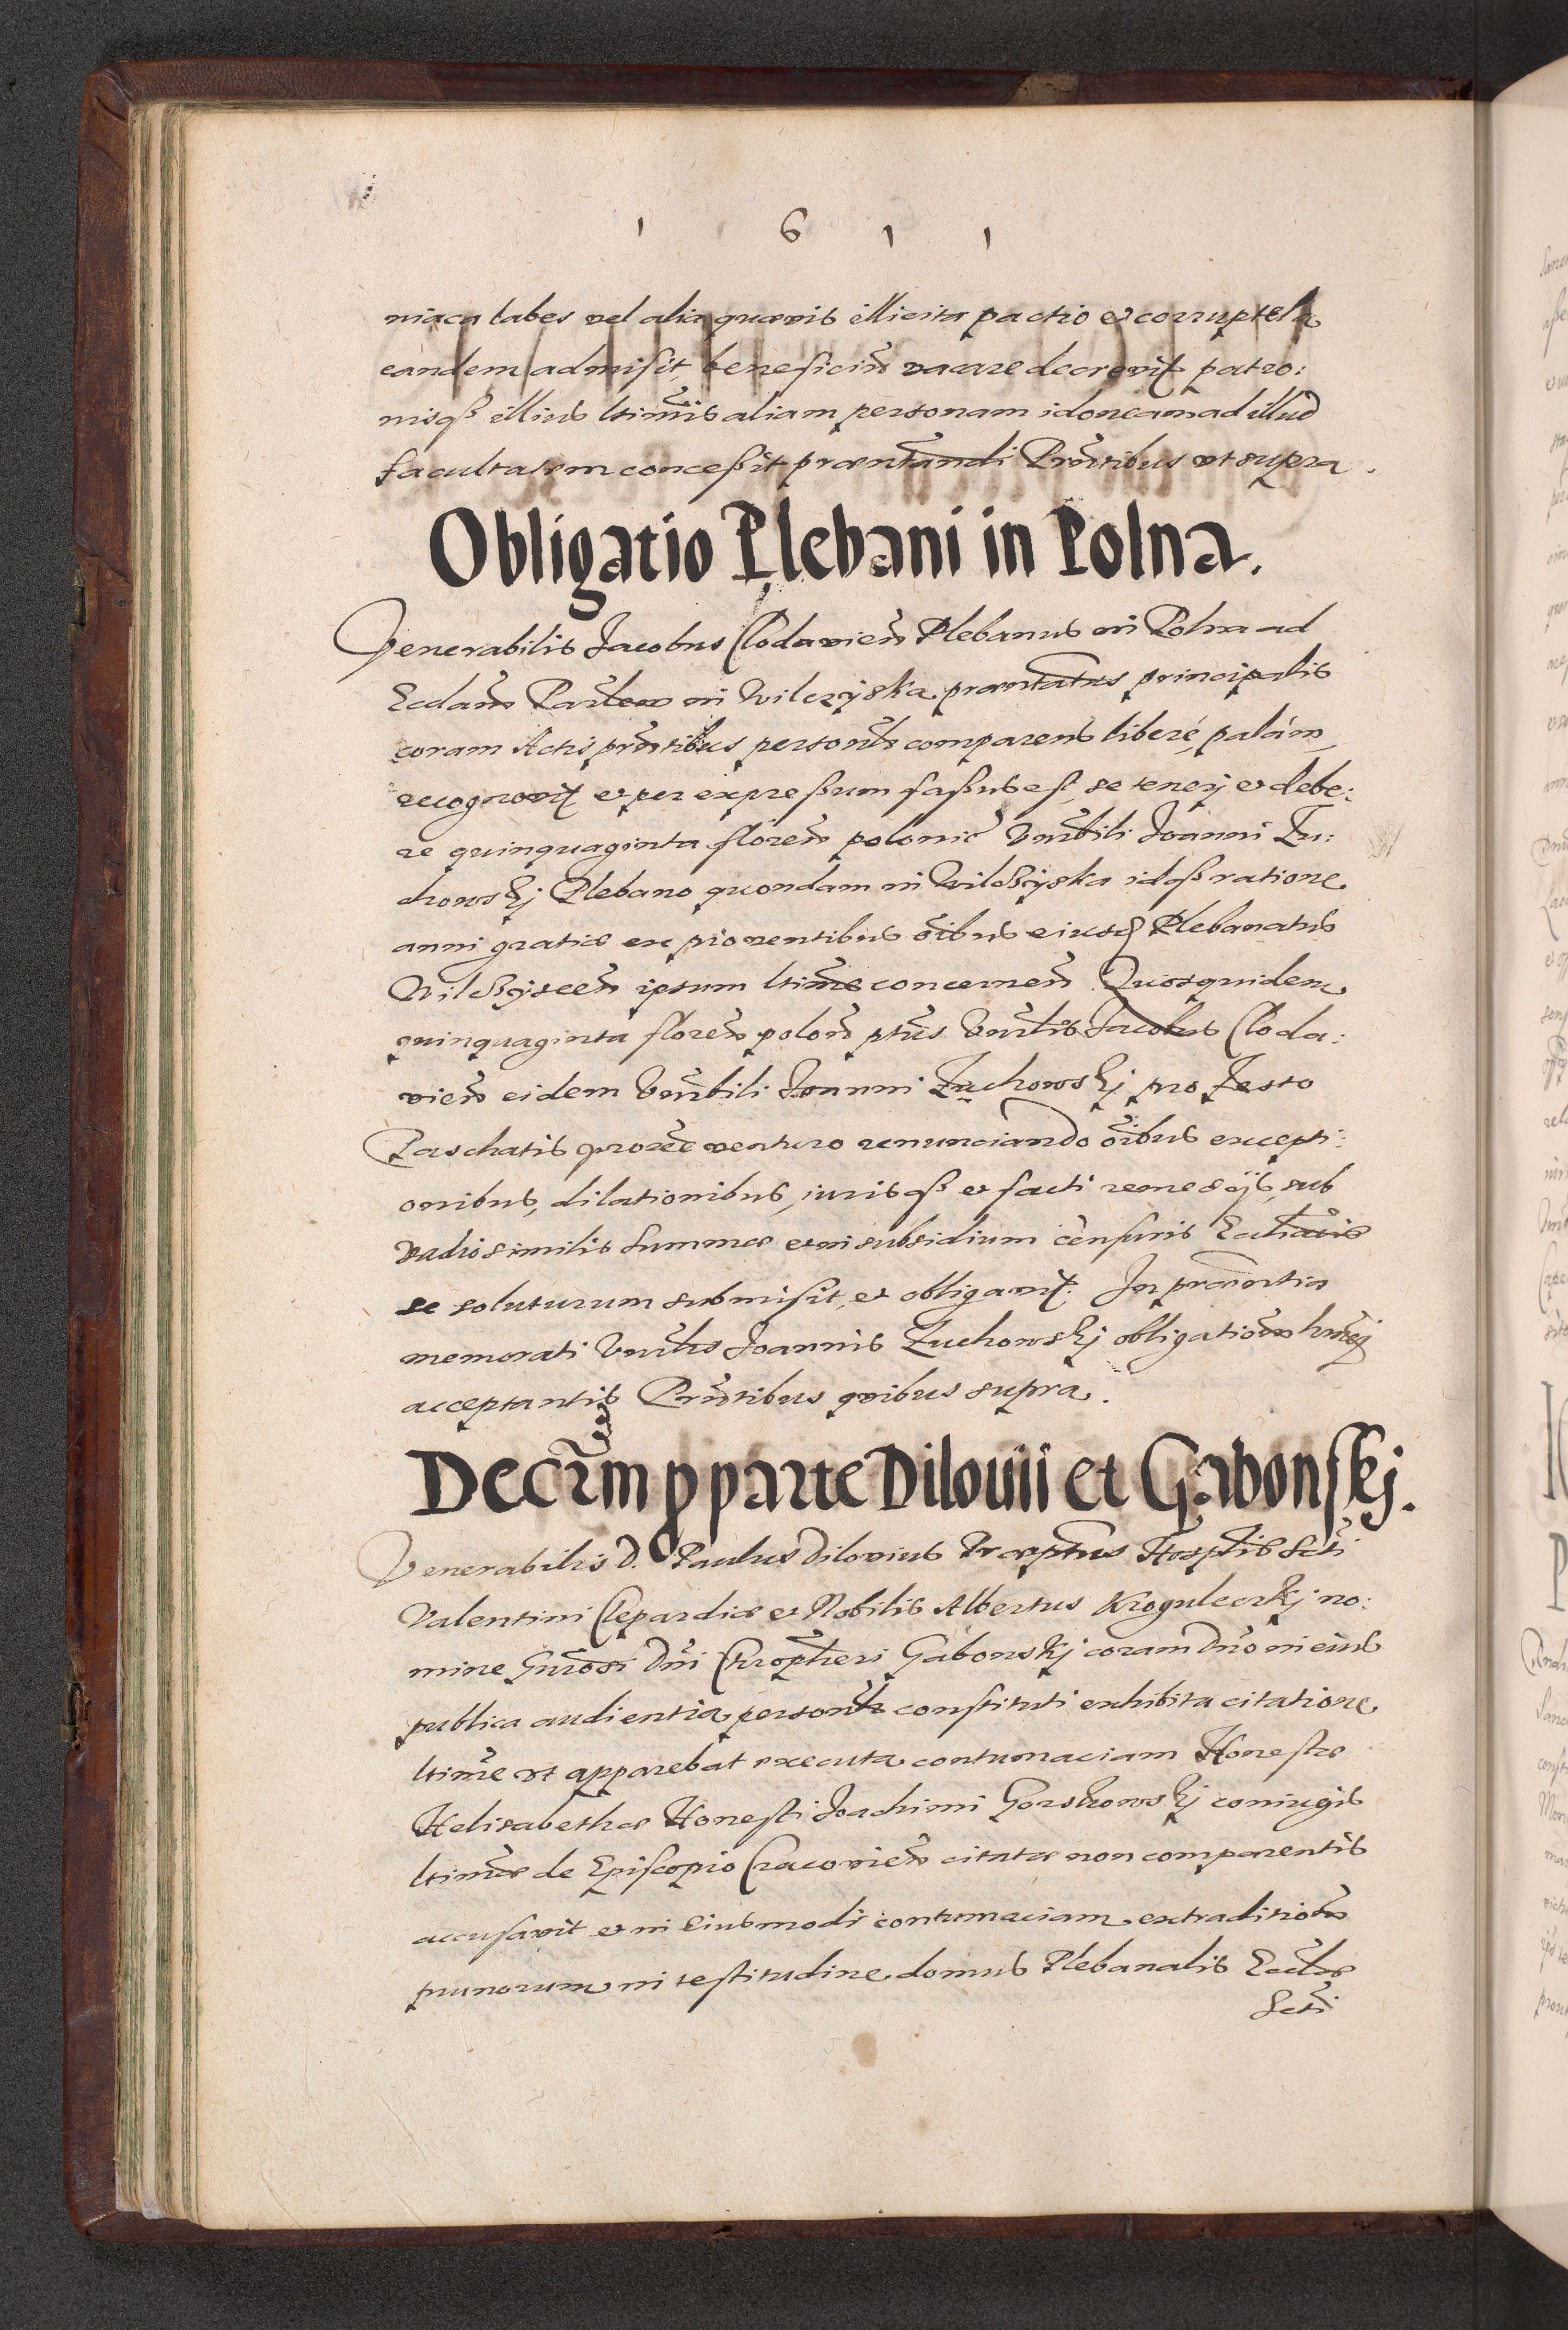 1 6 1 1
niaca labes vel alia quævis illicita pactio et corruptela
eandem admisit, beneficiũ vacare decrevit patro:
nisqß illius ltimis aliam personam idoneam ad illud
facultatem conceßit præntandi Prntibus vt supra.
Obligatio Plebani in Polna.
Venerabilis Jacobus Clodavien Plebanus in Polna ad
Ecclam Parlem in Wilczyska præntatus principalis
coram Actis prntibus personlr comparens liberé, palám
recognovit et per expreßum faßus est, se tenerj et debe:
re quinquaginta floren polonic Vnrbili Joanni Zu:
chowskj Plebano quondam in Wilczyska idqß ratione
anni gratiæ ex proventibus oibus eiusd Plebanatus
Wilczyscen ipsum ltime concernen Quosquidem
quinquaginta floren polon ptus Vnrlis Jacobus Cloda:
vien eidem Vnrbili Joanni Zuchowskj pro Festo
Paschatis proxe venturo renunciando oibus excepti:
onibus, dilationibus, iurisqß et facti remedijs, sub
vadio similis summæ et in subsidium censuris Ecclicis
se soluturum submisit, et obligavit. In præntia
memorati Vnrlis Joannis Zuchowskj obligationem hmoj
acceptantis Prntibus quibus supra.
Decrm p parte Dilovii et Gabonskj.
Venerabilis D. Paulus Dilovius Præptus Hosptlis Scti
Valentini Clepardiæ et Nobilis Albertus Kroguleczkj no:
mine Gnrosi Dni Chrophori Gabonskj coram Dno in eius
publica audientia personlr constituti exhibita citatione
ltime vt apparebat executa contumaciam Honestæ
Helisabethæ Honesti Joachimi Gorskowskj coniugis
ltimæ de Episcopio Cracovien citatæ non comparentis
accusavit et in eiusmodi contumaciam extraditionem
prunorum in testitudine domus Plebanalis Eccliæ
Scti